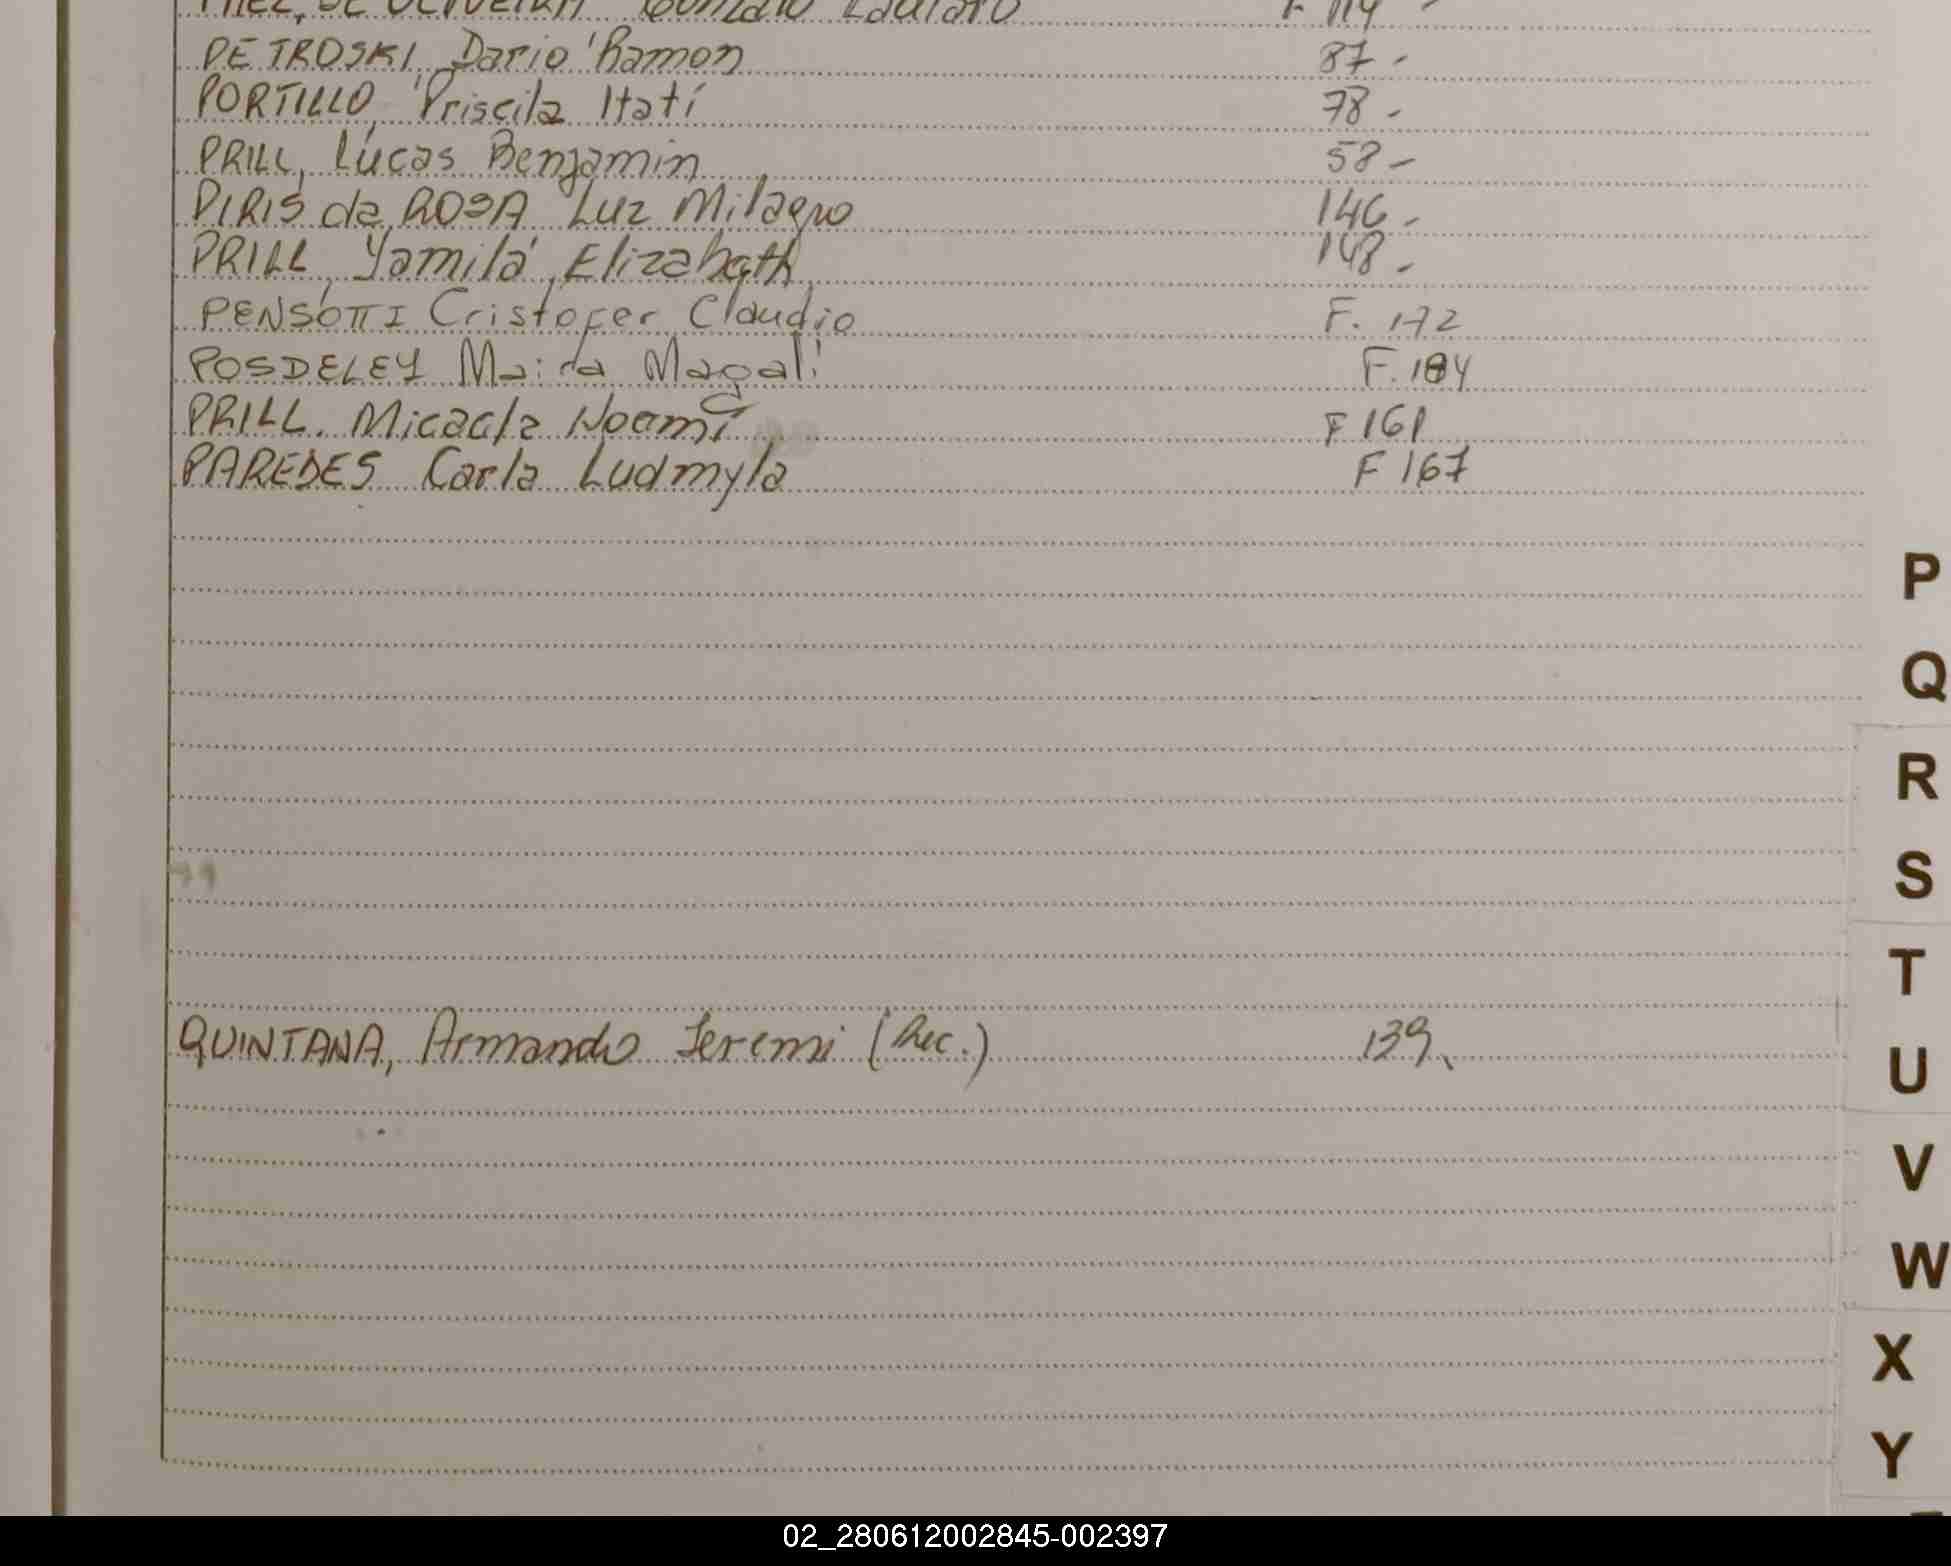 DE OLIVEIRA Gonzalo Lautaro F 114 -
PETROSKI, Dario Ramon 87 -
PORTILLO, Priscila Itatí 78 -
PRILL, Lucas Benjamin 58 -
PIRIS da ROSA Luz Milagro 146 -
PRILL, Yamila Elizabeth 148 -
PENSOTTI Cristofer Claudio F. 172
POSDELEY Maira Magali F. 184
PRILL. Micaela Noemí F 161
PAREDES Carla Ludmyla F 167
P
Q
R
S
T
QUINTANA, Armando Jeremi (Rec.) 139
U
V
W
X
Y
02_280612002845-002397